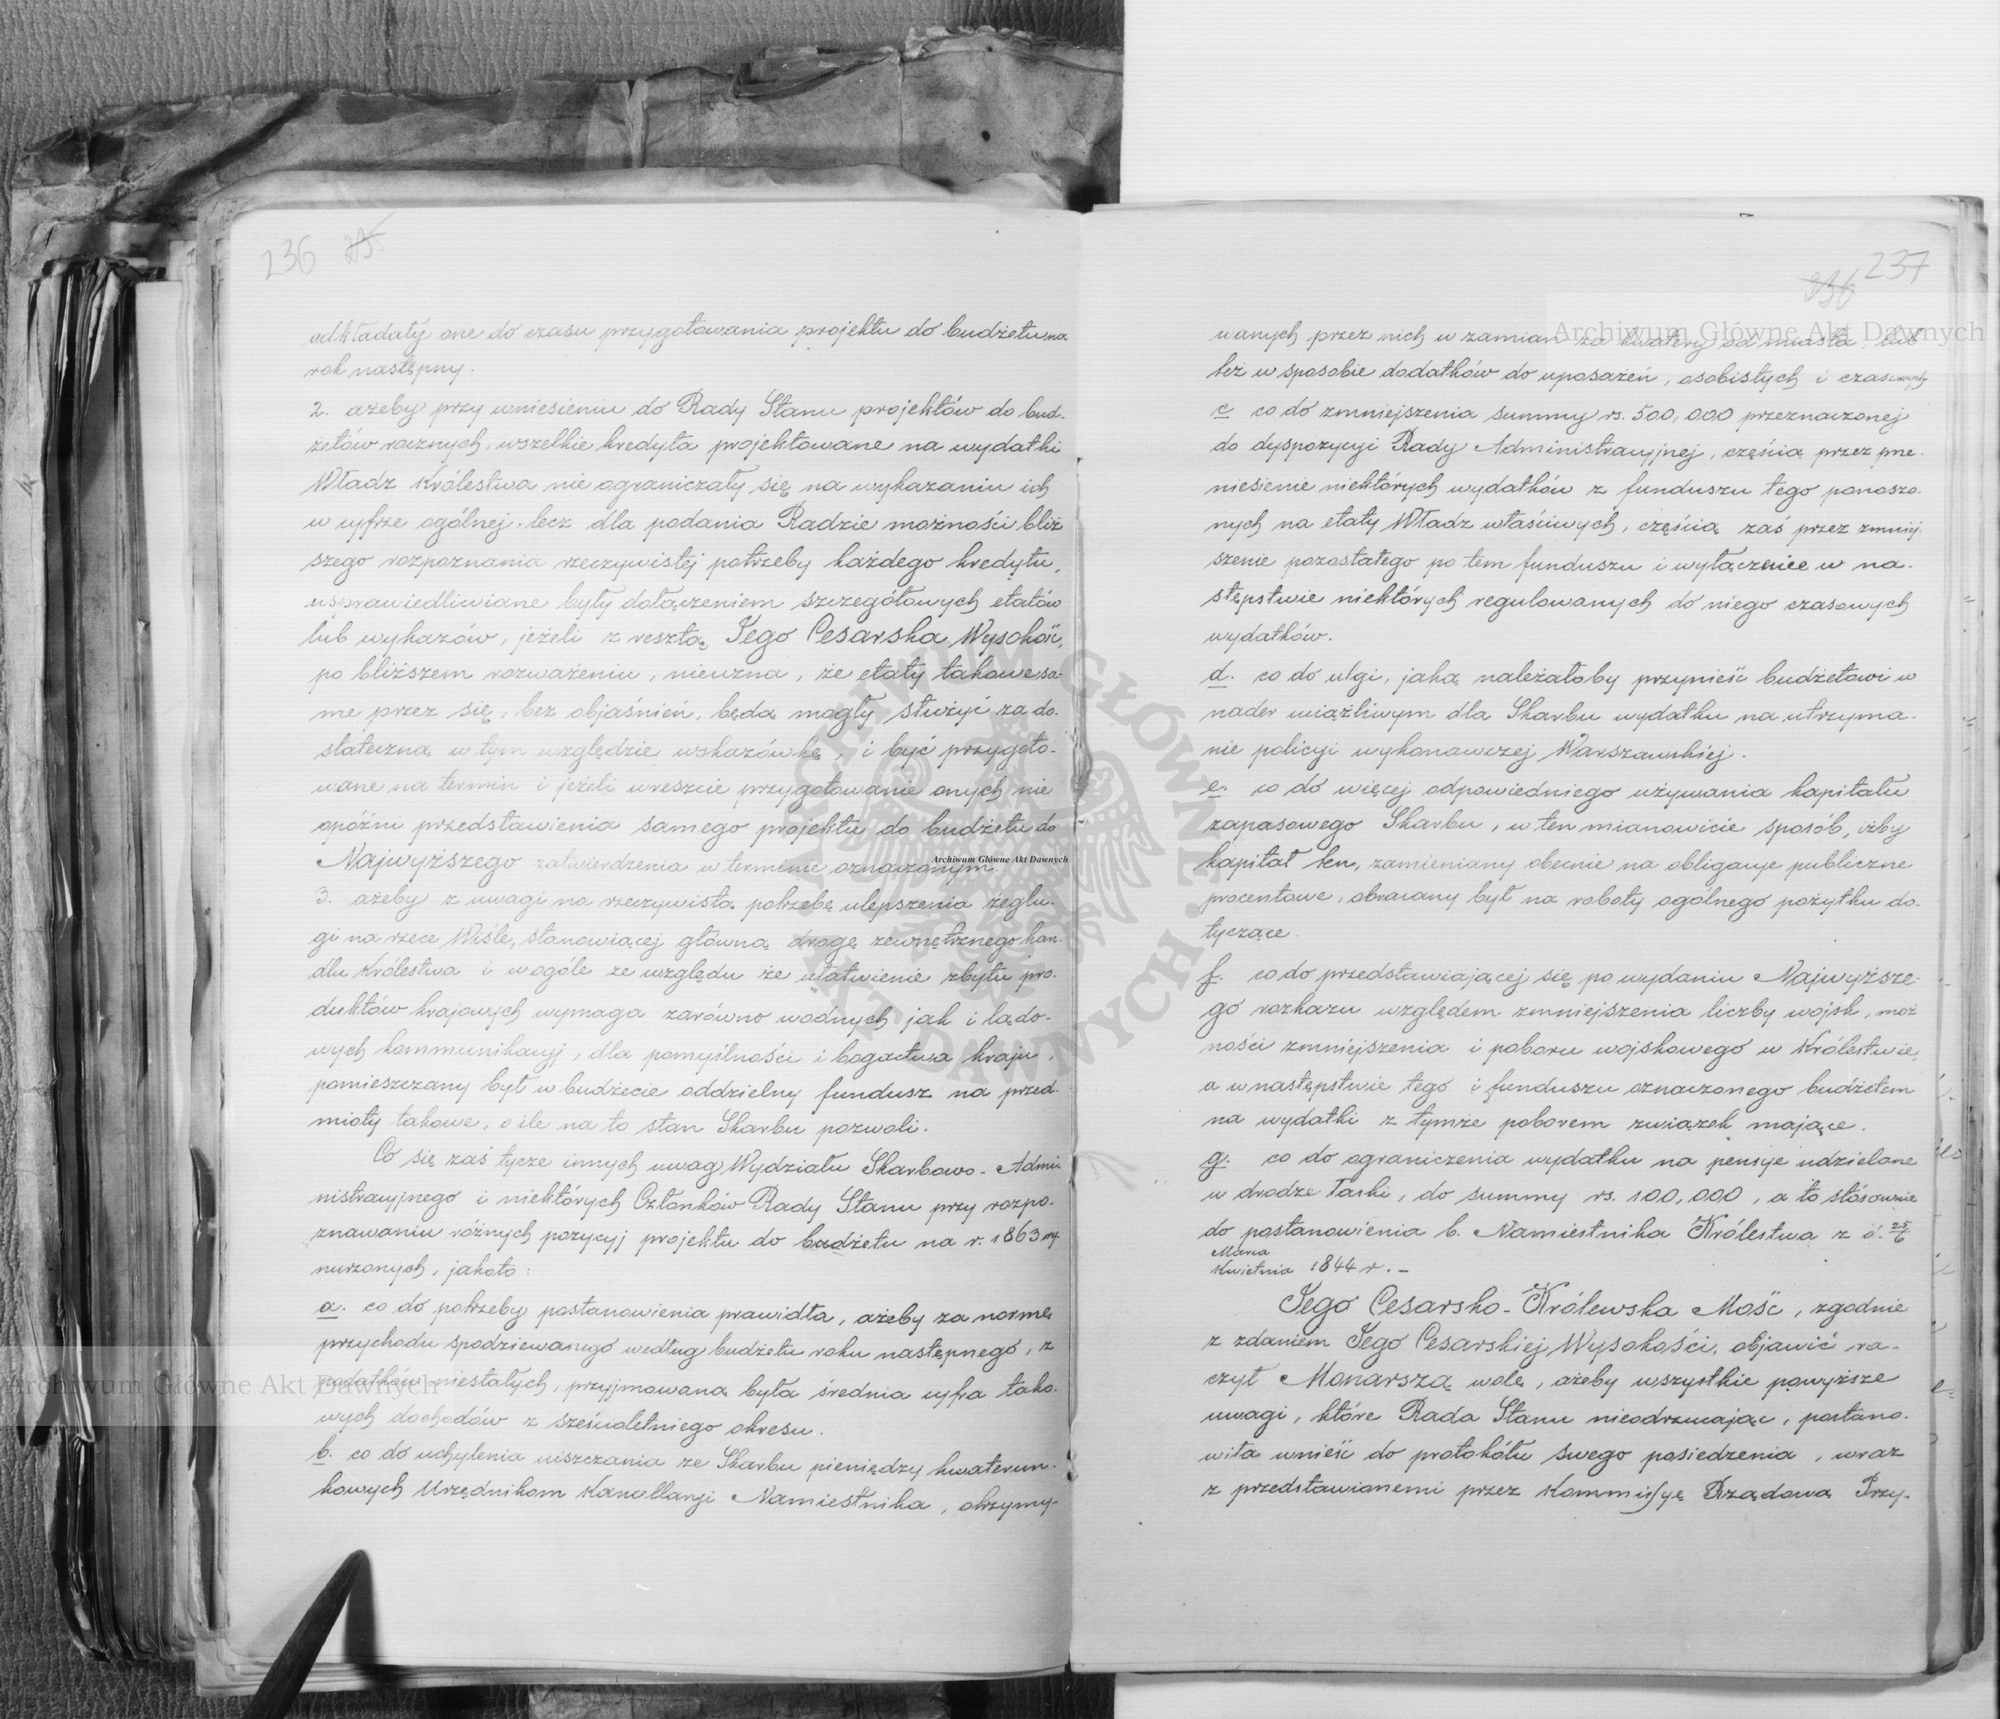 236 235
odkładały one do czasu przygotowania projektu do budżetu na
rok następny.
2. ażeby przy wniesieniu do Rady Stanu projektów do bud-
żetów rocznych, wszelkie kredyta projektowane na wydatki
Władz Królestwa nie ograniczały się na wykazaniu ich
w cyfrze ogólnej, lecz dla podania Radzie możności bliż
szego rozpoznania rzeczywistej potrzeby każdego kredytu,
usprawiedliwiane były dołączeniem szczegółowych etatów
lub wykazów, jeżeli z resztą Jego Cesarska Wysokość,
po bliższem rozważeniu, nieuzna, że etaty takowe sa-
me przez się, bez objaśnień, będą mogły służyć za do-
stateczną w tym względzie wskazówkę, i być przygoto-
wane na termin i jeżeli wreszcie przygotowanie onych nie
opóźni przedstawienia samego projektu do budżetu do
Najwyższego zatwierdzenia w terminie oznaczonym.
3. ażeby z uwagi na rzeczywistą potrzebę ulepszenia żeglu-
gi na rzece Wiśle, stanowiącej główną drogę zewnętrznego han-
dlu Królestwa i w ogóle ze względu że ułatwienie zbytu pro-
duktów krajowych wymaga zarówno wodnych jak i lądo-
wych kommunikacyj, dla pomyślności i bogactwa kraju,
pomieszczany był w budżecie oddzielny fundusz na przed-
mioty takowe, o ile na to stan Skarbu pozwoli.
Co się zaś tycze innych uwag Wydziału Skarbowo-Admi-
nistracyjnego i niektórych Członków Rady Stanu przy rozpo-
znawaniu różnych pozycyj projektu do budżetu na r. 1863 wy
nurzonych, jakoto:
a. co do potrzeby postanowienia prawidła, ażeby za normę
przychodu spodziewanego według budżetu roku następnego, z
podatków niestałych, przyjmowana była średnia cyfra tako-
wych dochodów z sześcioletniego okresu.
b. co do uchylenia uiszczania ze Skarbu pieniędzy kwaterun-
kowych Urzędnikom Kancellaryi Namiestnika, otrzymy-
237
236
wanych przez nich w zamian za kwatery od miasta, lub
też w sposobie dodatków do uposażeń, osobistych i czasowych
c co do zmniejszenia summy rs. 500,000 przeznaczonej
do dyspozycyi Rady Administracyjnej, częścią przez prze-
niesienie niektórych wydatków z funduszu tego ponoszo-
nych na etaty Władz właściwych, częścią zaś przez zmniej-
szenie pozostałego po tem funduszu i wyłączenie w na-
stępstwie niektórych regulowanych do niego czasowych
wydatków.
d. co do ulgi, jaką należałoby przynieść budżetowi w
nader uciążliwym dla Skarbu wydatku na utrzyma-
nie policyi wykonawczej Warszawskiej.
e. co do więcej odpowiedniego używania kapitału
zapasowego Skarbu, w ten mianowicie sposób, iżby
kapitał ten, zamieniany obecnie na obligacye publiczne
procentowe, obracany był na roboty ogólnego pożytku do-
tyczące.
f. co do przedstawiającej się po wydaniu Najwyższe-
go rozkazu względem zmniejszenia liczby wojsk, moż
ności zmniejszenia i poboru wojskowego w Królestwie,
a w następstwie tego i funduszu oznaczonego budżetem
na wydatki z tymże poborem związek mające.
g. co do ograniczenia wydatku na pensye udzielane
w drodze łaski, do summy rs. 100,000, a to stosownie
do postanowienia b. Namiestnika Królestwa z d. 25/6
Marca
Kwietnia 1844 r. –
Jego Cesarsko-Królewska Mość, zgodnie
z zdaniem Jego Cesarskiej Wysokości, objawić ra-
czył Monarszą wolę, ażeby wszystkie powyższe
uwagi, które Rada Stanu nieodrzucając, postano-
wiła wnieść do protokółu swego posiedzenia, wraz
z przedstawionemi przez Kommissyę Rządową Przy-
Archiwum Główne Akt Dawnych
Archiwum Główne Akt Dawnych
Archiwum Główne Akt Dawnych
ARCHIWUM GŁÓWNE AKT DAWNYCH